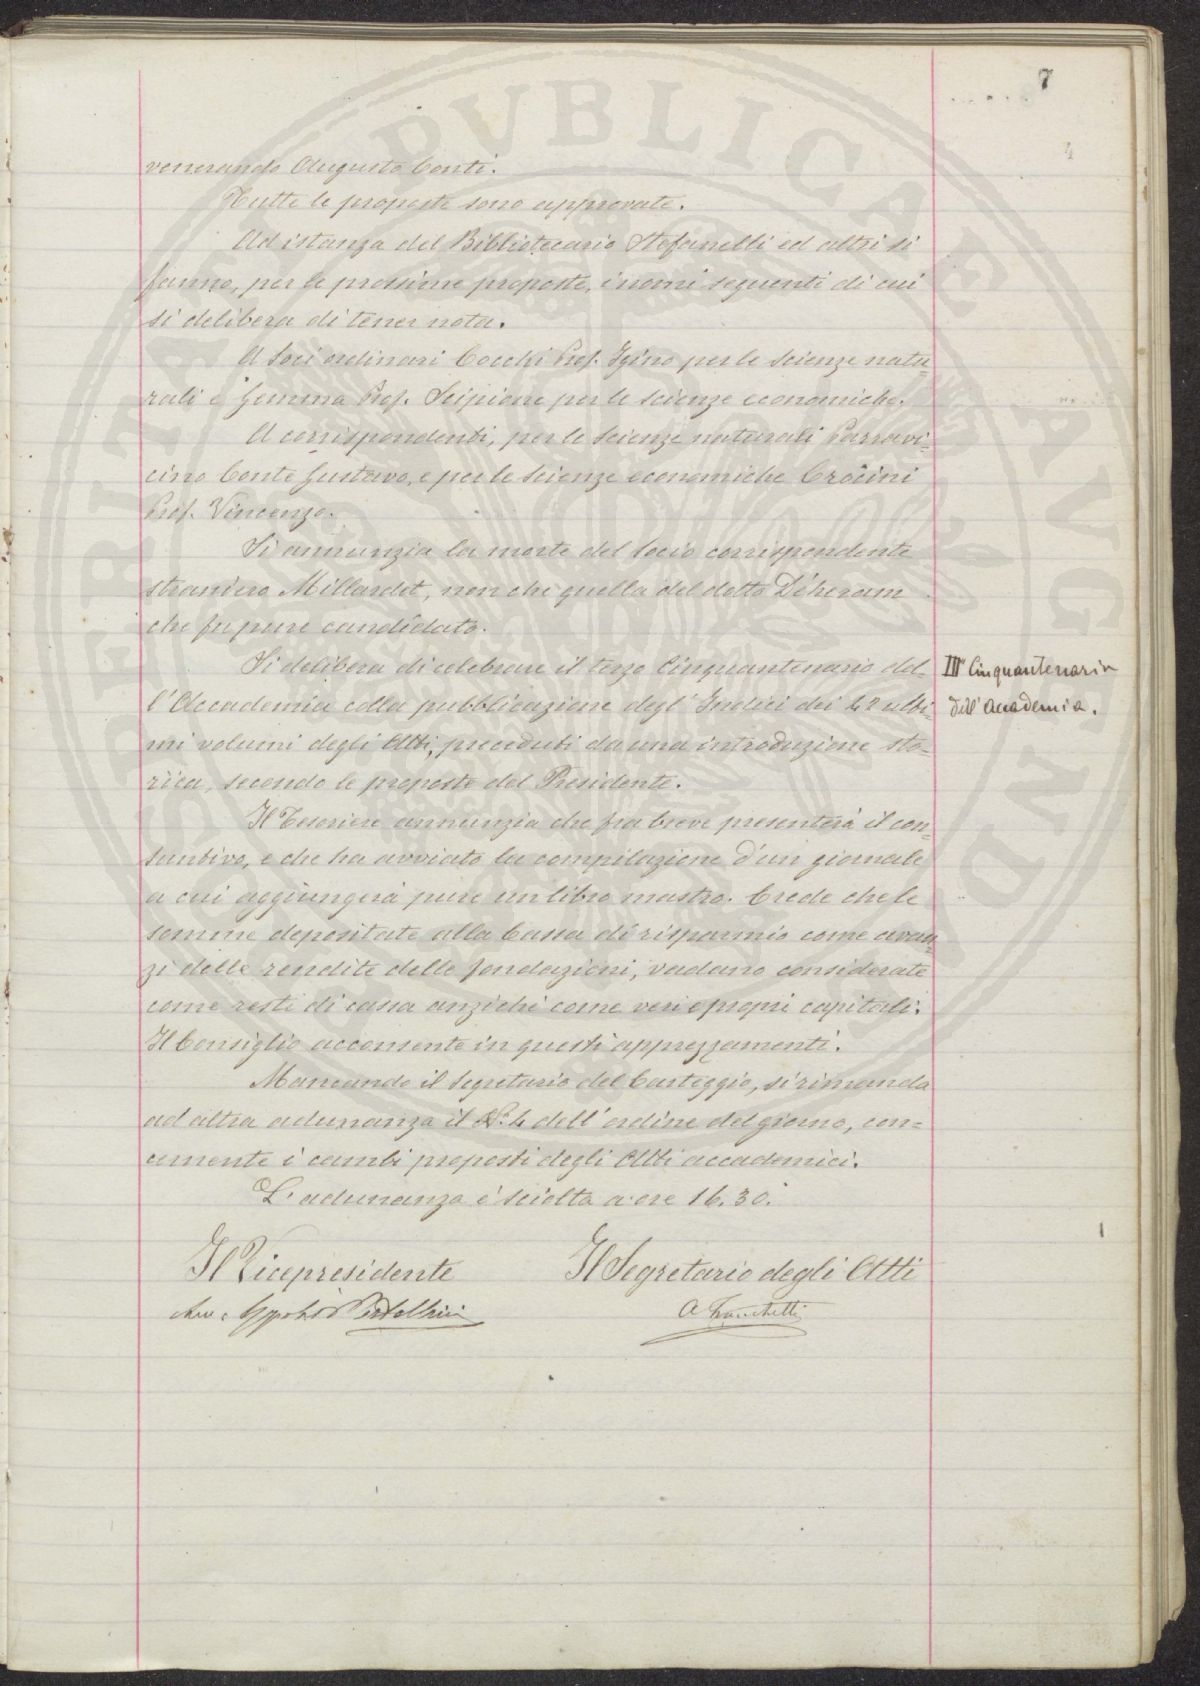 7
4
venerando Augusto Conti.
Tutte le proposte sono approvate.
Ad istanza del Bibliotecario Stefanelli ed altri si
fanno, per le prossime proposte, i nomi seguenti di cui
si delibera di tener nota.
A Soci ordinari Cocchi Prof. Igino per le scienze natu=
rali e Gemma Prof. Scipione per le scienze economiche.
A corrispondenti, per le scienze naturali Parravi=
cino Conte Gustavo, e per le scienze economiche Crocini
Prof. Vincenzo.
Si annunzia la morte del socio corrispondente
straniero Millardet, non che quella del dotto Déheram
che fu pure candidato.
Si delibera di celebrare il terzo Cinquantenario del=
l'Accademia colla pubblicazione degl'Indici dei 42 ulti=
mi volumi degli Atti, preceduti da una introduzione sto=
rica, secondo le proposte del Presidente.
III° Cinquantenario
dell'Accademia.
Il Tesoriere annunzia che fra breve presenterà il con=
suntivo, e che ha avviato la compilazione d'un giornale
a cui aggiungerà pure un libro mastro. Crede che le
somme depositate alla Cassa di risparmio come avan=
zi delle rendite delle fondazioni, vadano considerate
come resti di cassa anziché come veri e propri capitali.
Il Consiglio acconsente in questi apprezzamenti.
Mancando il Segretario del Carteggio, si rimanda
ad altra adunanza il N.° 4 dell'ordine del giorno, con=
cernente i cambi proposti degli Atti accademici.
L'adunanza è sciolta a ore 16.30.
Il Vicepresidente
Il Segretario degli Atti
A Franchetti
PUBLICAE
AUGENDAE